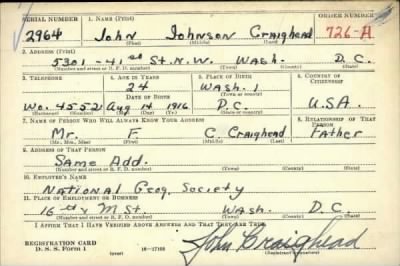 SERIAL NUMBER 1. NAME (Print) ORDER NUMBER
2964 John Johnson Craighead 726-A
(First) (Middle) (Last)
2. ADDRESS (Print)
5301-41st St. N.W. Wash. D.C.
(Number and street or R. F. D. number) (Town) (County) (State)
3. TELEPHONE 4. AGE IN YEARS 5. PLACE OF BIRTH 6. COUNTRY OF CITIZENSHIP
24 Wash.
DATE OF BIRTH (Town or county)
Wo. 4552 Aug 14 1916 D.C. U.S.A.
(Exchange) (Number) (Mo.) (Day) (Yr.) (State or country)
7. NAME OF PERSON WHO WILL ALWAYS KNOW YOUR ADDRESS 8. RELATIONSHIP OF THAT PERSON
Mr. F. C. Craighead Father
(Mr., Mrs., Miss) (First) (Middle) (Last)
9. ADDRESS OF THAT PERSON
Same Add.
(Number and street or R. F. D. number) (Town) (County) (State)
10. EMPLOYER'S NAME
National Geog. Society
11. PLACE OF EMPLOYMENT OR BUSINESS
16th & M St. Wash. D.C.
(Number and street or R. F. D. number) (Town) (County) (State)
I AFFIRM THAT I HAVE VERIFIED ABOVE ANSWERS AND THAT THEY ARE TRUE.
REGISTRATION CARD
D. S. S. Form 1 16-17105 John Craighead
(Registrant's signature)